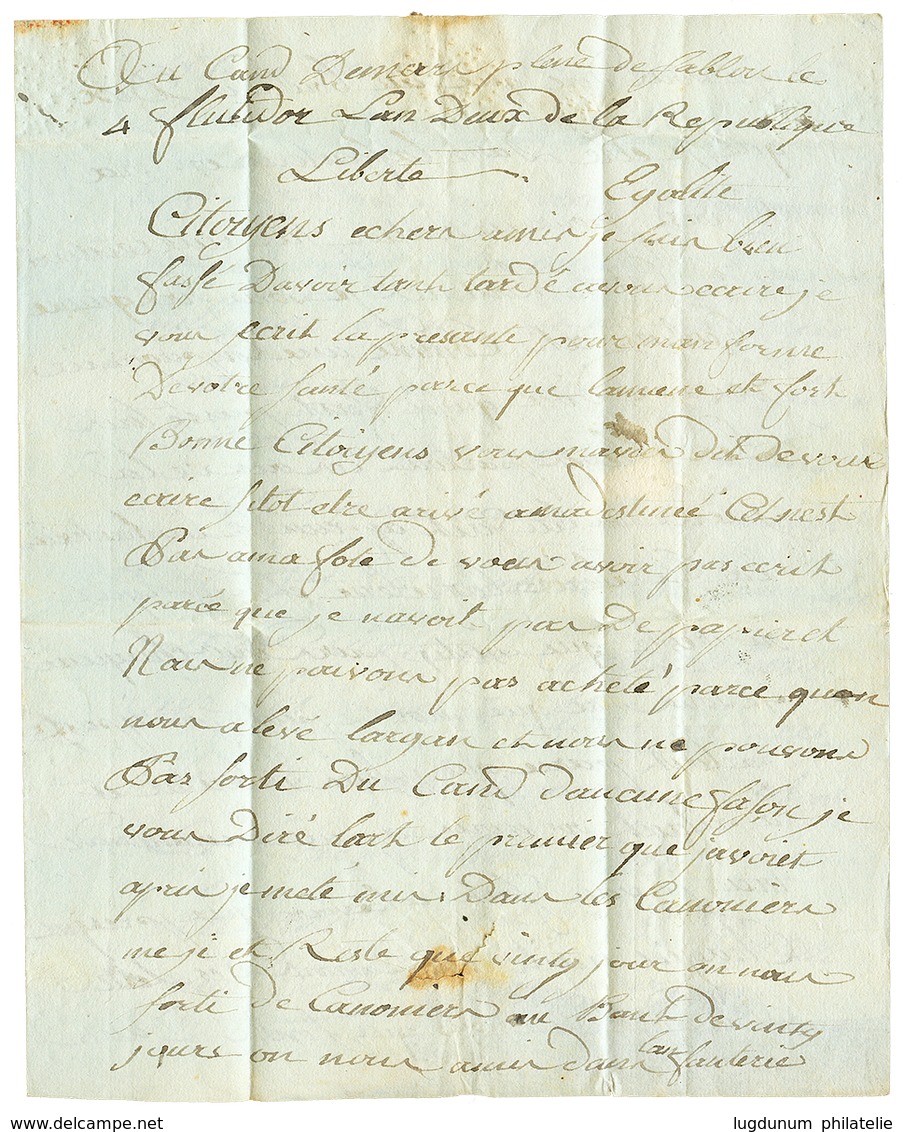 Du Camd Demars plene de sablon le
4 fluctidor Lan Deux de la Republique
Liberte Egalite
Citoyens echers amis je suis bien
fassé Davoir tant tardé avous ecrire je
vous ecrit la presante pour man forme
De votre santé parce que lamene et fort
Bonne Citoyens vous mavois dit de vous
ecrire sitot etre arivé amadestineé Cet nest
Pas ama fote de vous avoir pas ecrit
parce que je navoit pas De papier et
Nous ne pouvons pas acheté parce quon
nous alevé largan et nous ne pouvons
Pas sorti Du Camd daucune fason je
vous Diré lart le premier que javoiet
apris je meté mis Dans les Canoniers
me ji et Reste que vinty jour on nous
sorti de Canoniers au Bout de vinty
jours on nous amis dans lan fanterie
delcampe.net
lugdunum philatelie